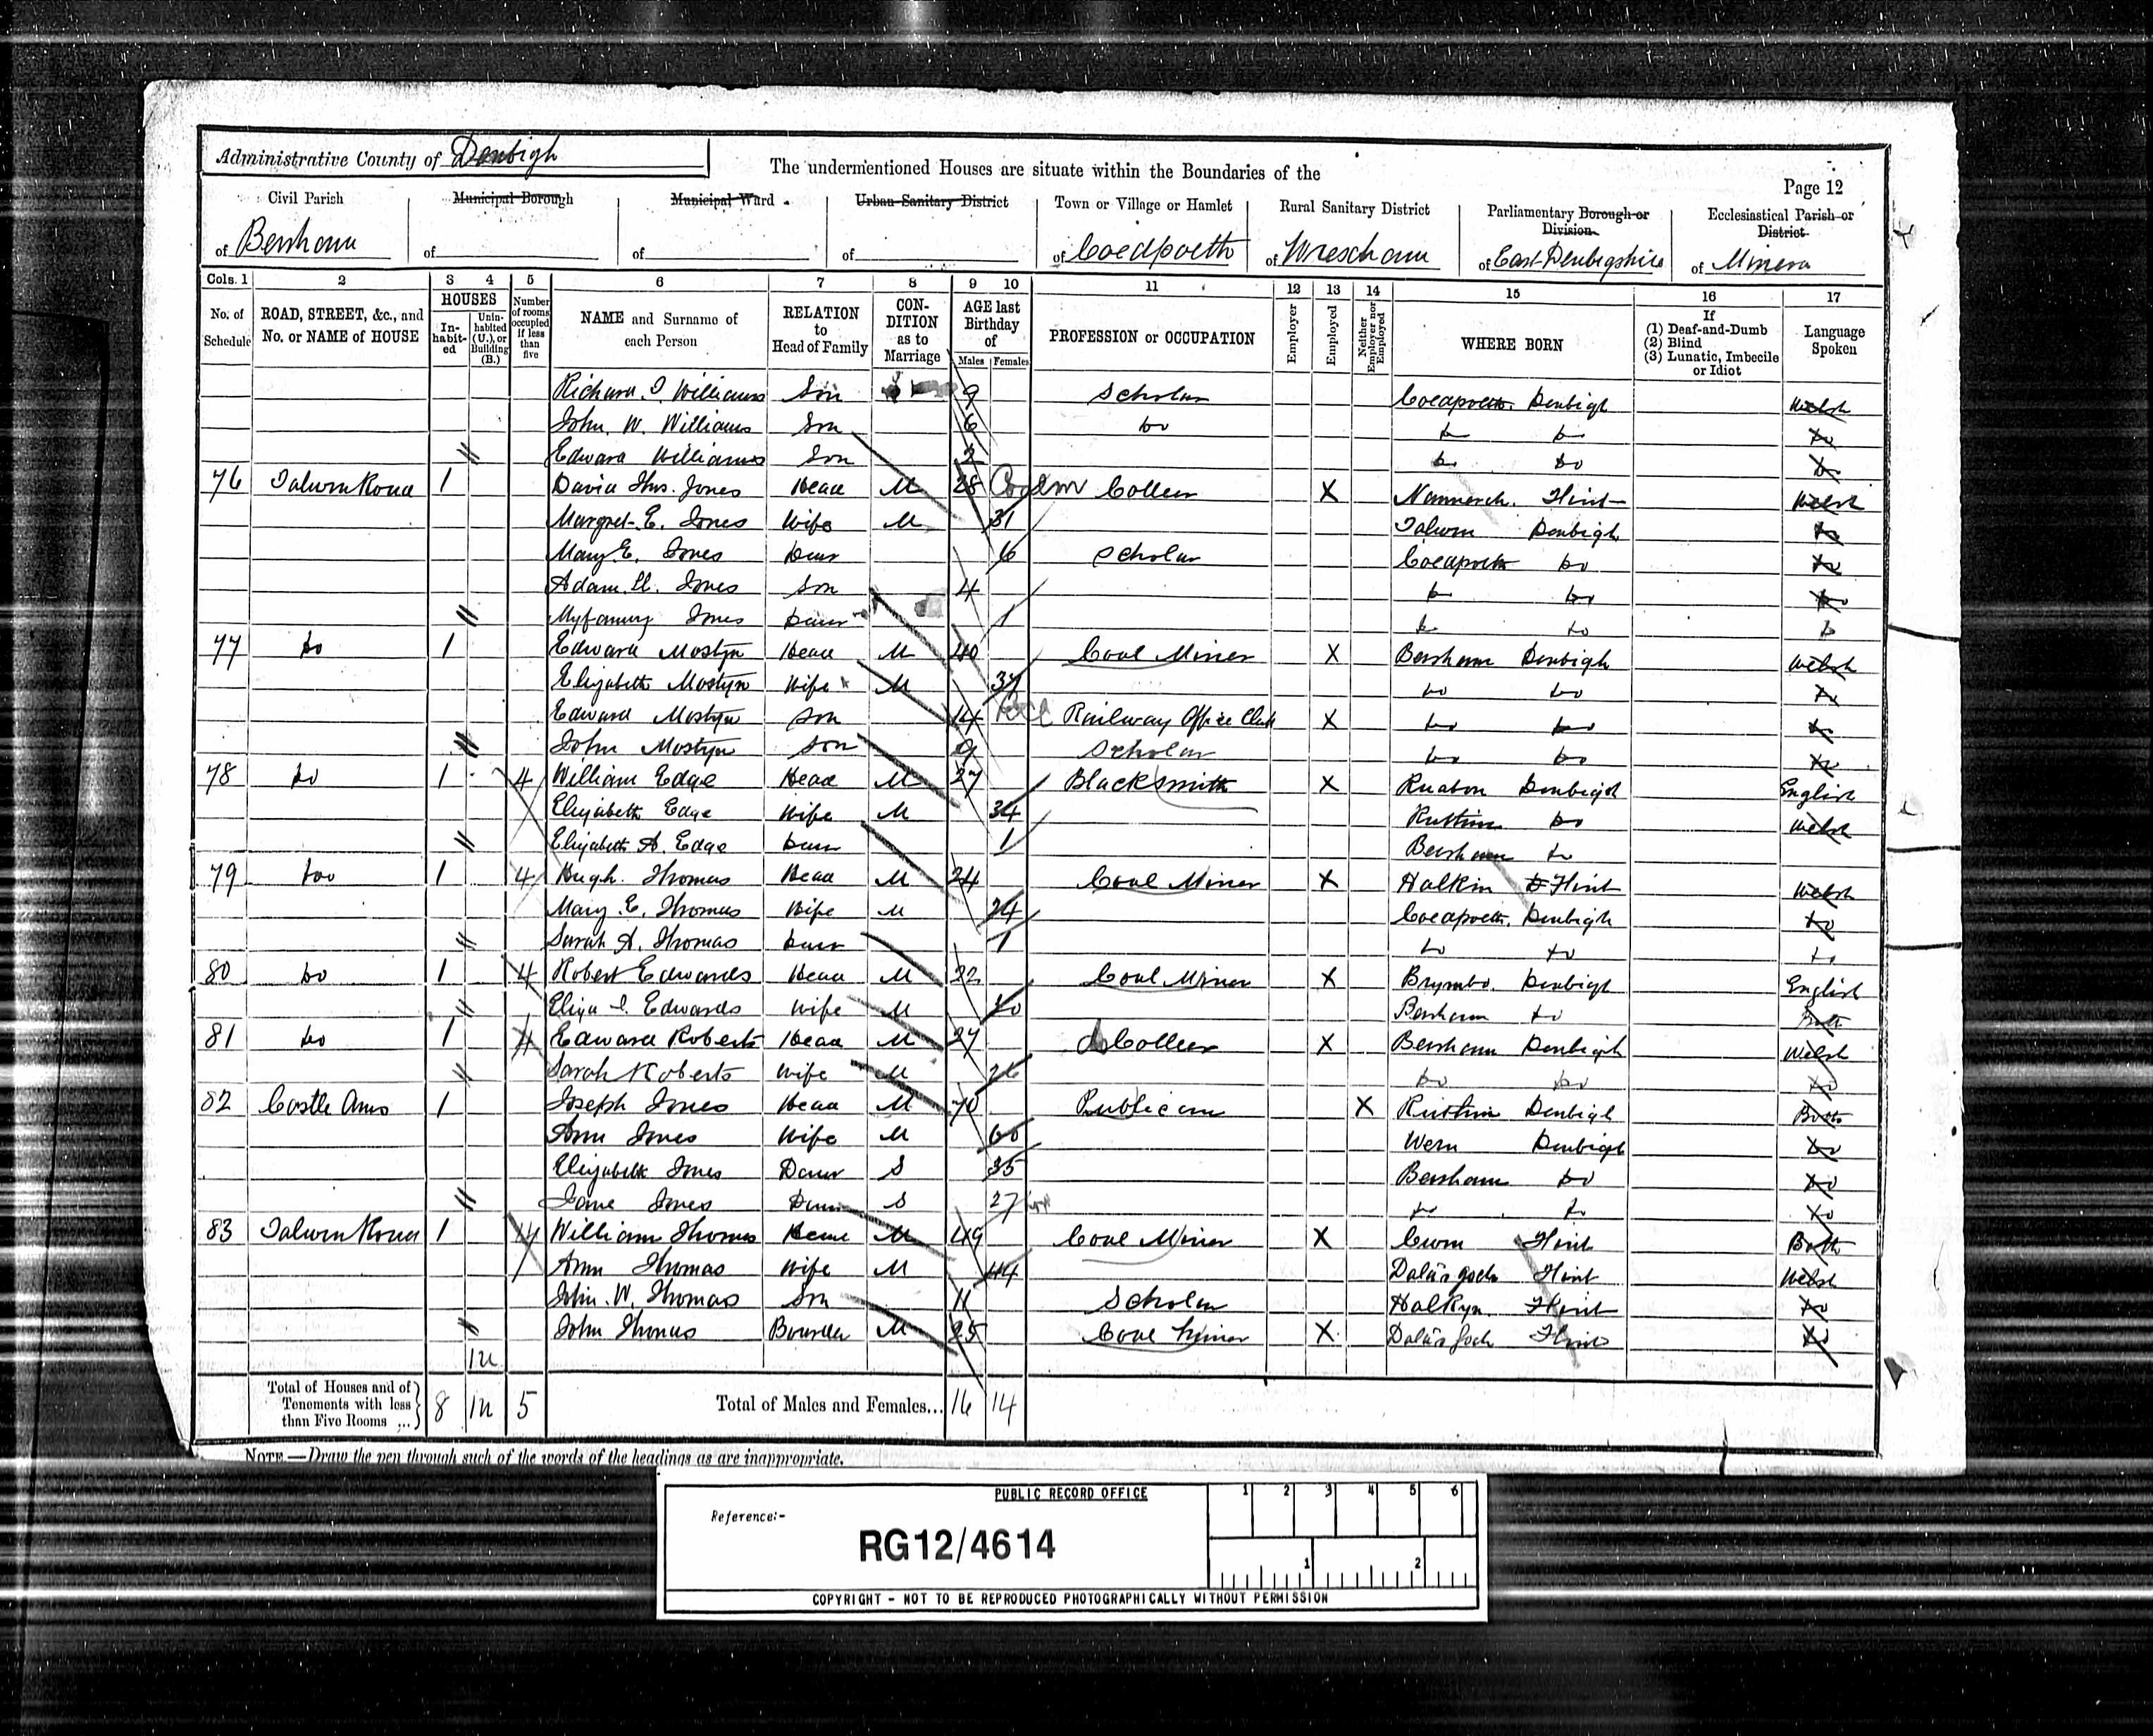 Administrative County of Denbigh
The undermentioned Houses are situate within the Boundaries of the
Page 12
Civil Parish
of Bersham
Municipal Borough
of
Municipal Ward
of
Urban Sanitary District
of
Town or Village or Hamlet
of Coedpoeth
Rural Sanitary District
of Wrexham
Parliamentary Borough or Division
of East Denbigshire
Ecclesiastical Parish or District
of Minera
Cols. 1 2 3 4 5 6 7 8 9 10 11 12 13 14 15 16 17
No. of Schedule
ROAD, STREET, &c., and No. or NAME of HOUSE
HOUSES
In-habit-ed
Unin-habited (U.), or Building (B.)
Number of rooms occupied if less than five
NAME and Surname of each Person
RELATION to Head of Family
CON-DITION as to Marriage
AGE last Birthday of
Males Females
PROFESSION or OCCUPATION
Employer
Employed
Neither Employer nor Employed
WHERE BORN
If (1) Deaf-and-Dumb (2) Blind (3) Lunatic, Imbecile or Idiot
Language Spoken
Richard I. Williams Son 9 Scholar Coedpoeth Denbigh Welsh
John W. Williams Son 6 Do Do Do Do
Edward Williams Son 2 Do Do Do
76 Talwrn Road 1 David Thos. Jones Head M 28 Collier X Nannerch Flint Welsh
Margret E. Jones Wife M 31 Talwrn Denbigh Do
Mary E. Jones Daur 6 Scholar Coedpoeth Do Do
Adam Ll. Jones Son 4 Do Do Do
Myfanwy Jones Daur 1 Do Do Do
77 Do 1 Edward Mostyn Head M 40 Coal Miner X Bersham Denbigh Welsh
Elizabeth Mostyn Wife M 37 Do Do Do
Edward Mostyn Son 14 Railway Office Clerk X Do Do Do
John Mostyn Son 9 Scholar Do Do Do
78 Do 1 4 William Edge Head M 27 Blacksmith X Ruabon Denbigh English
Elizabeth Edge Wife M 34 Ruthin Do Welsh
Elizabeth A. Edge Daur 1 Bersham Do
79 Do 1 4 Hugh Thomas Head M 24 Coal Miner X Halkin Flint Welsh
Mary E. Thomas Wife M 24 Coedpoeth Denbigh Do
Sarah A. Thomas Daur 1 Do Do Do
80 Do 1 4 Robert Edwards Head M 22 Coal Miner X Brymbo Denbigh English
Eliza I. Edwards Wife M 20 Bersham Do Both
81 Do 1 4 Edward Roberts Head M 27 Collier X Bersham Denbigh Welsh
Sarah Roberts Wife M 26 Do Do Do
82 Castle Arms 1 Joseph Jones Head M 70 Publican X Ruthin Denbigh Both
Ann Jones Wife M 60 Wern Denbigh Do
Elizabeth Jones Daur S 35 Bersham Do Do
Jane Jones Daur S 27 Do Do Do
83 Talwrn Road 1 4 William Thomas Head M 49 Coal Miner X Cwm Flint Both
Ann Thomas Wife M 44 Flint Welsh
John W. Thomas Son 11 Scholar Halkyn Flint Do
John Thomas Boarder M 25 Coal Miner X Flint Do
1u
Total of Houses and of Tenements with less than Five Rooms ...
8 1u 5
Total of Males and Females...
16 14
NOTE.—Draw the pen through such of the words of the headings as are inappropriate.
PUBLIC RECORD OFFICE
Reference:-
RG12/4614
1 2 3 4 5 6
1 2
COPYRIGHT - NOT TO BE REPRODUCED PHOTOGRAPHICALLY WITHOUT PERMISSION